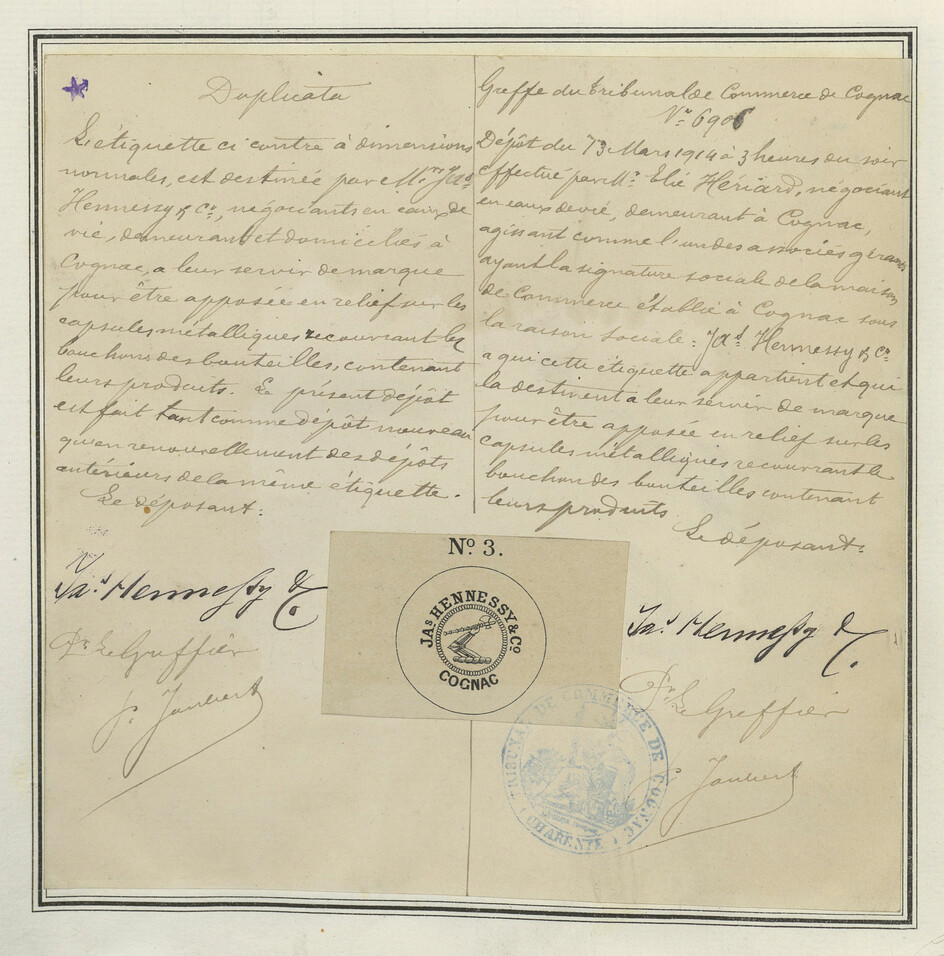 Duplicata
L'étiquette ci contre à dimensions
normales, est destinée par M.rs Ja.s
Hennessy & C.o, négociants en eaux de
vie, demeurant et domiciliés à
Cognac, a leur servir de marque
pour être apposée en relief sur les
capsules métalliques recouvrant les
bouchons des bouteilles, contenant
leurs produits. Le présent dépôt
est fait tant comme dépôt nouveau
qu'en renouvellement des dépôts
antérieurs de la même étiquette.
Le déposant:
Ja.s Hennessy & Co.
Pr. Le Greffier
P. Joubert
Greffe du tribunal de Commerce de Cognac
N.o 6906
Dépôt du 13 Mars 1914 à 3 heures du soir
effectué par M.r Elie Hériard, négociant
en eaux de vié, demeurant à Cognac,
agissant comme l'un des associés gérants
ayant la signature sociale de la maison
de Commerce établie à Cognac sous
la raison sociale: Ja.s Hennessy & C.o
a qui cette étiquette appartient et qui
la destinent a leur servir de marque
pour être apposée en relief sur les
capsules métalliques recouvrant le
bouchon des bouteilles contenant
leurs produits
Le déposant:
Ja.s Hennessy & Co.
Pr. Le Greffier
P. Joubert
No. 3.
JAS HENNESSY & Co
COGNAC
TRIBUNAL DE COMMERCE DE COGNAC
CHARENTE